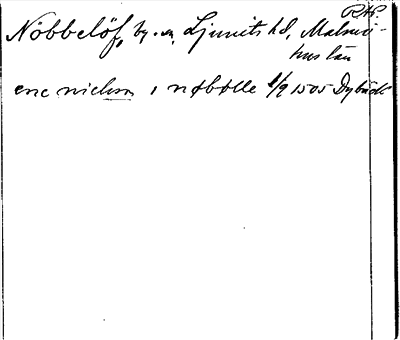 P.HP.
Nöbbelöf, by. o. sn, Ljunits hd, Malmö-
hus län
ene nielsṇ i nøbølle 1/9 1505 Dybäck